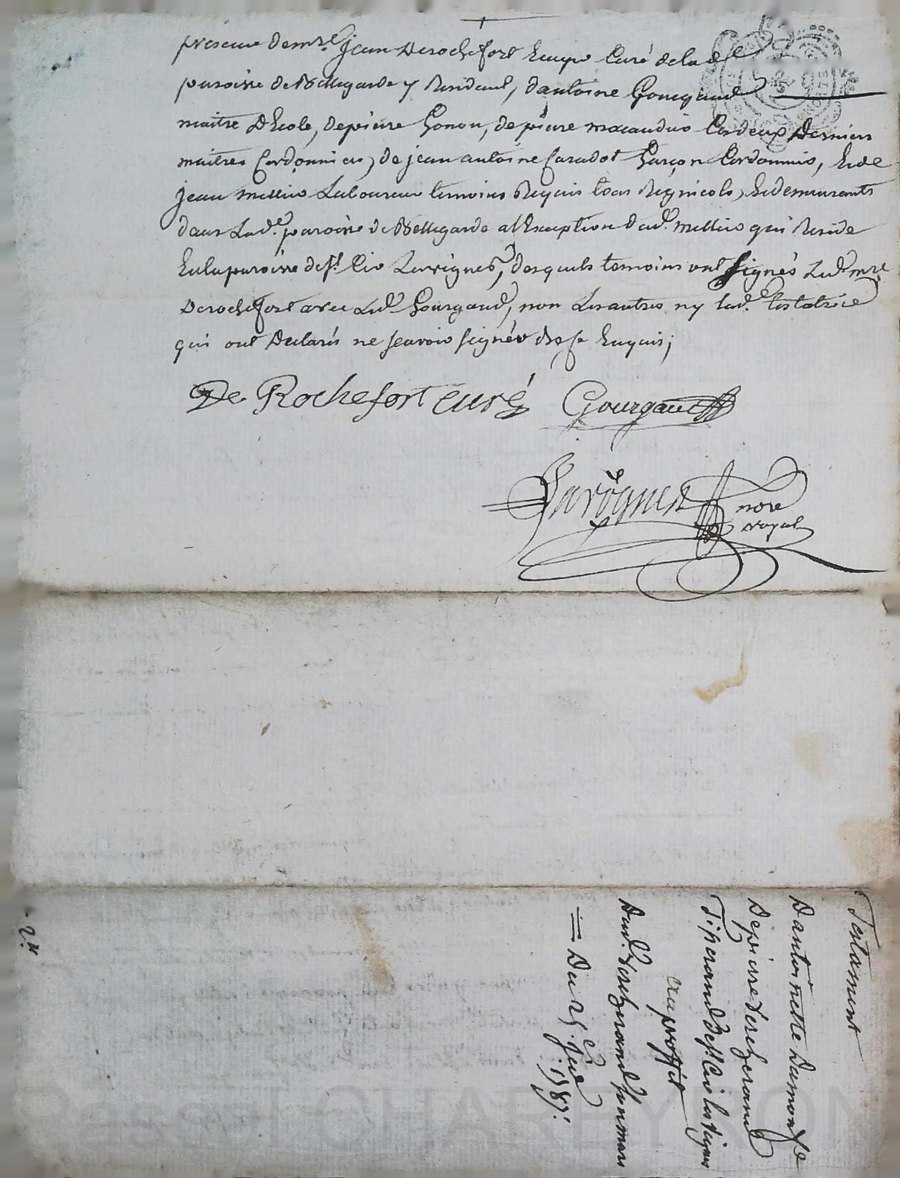 presence de mre jean Derochefort Curé de lad.
paroisse de Bellegarde y Residant, d'antoine Gourgaud
maitre D'Ecole, de pierre Gonon, de pierre macaudier Les deux Derniers
maitres Cordonniers, de jean antoine Caradot Garçon Cordonnier, Et de
jean mellier Laboureur temoins Requis tous Regnicols, Et demeurants
dans Lad.e paroisse de Bellegarde a l'Exception dud. mellier qui Reside
En la paroisse de St. Cir Lavignes, desquels temoins ont signés Led. mre
Derochefort avec Led. Gourgaud, non Les autres ny lad.e testatrice
qui ont Declarés ne sçavoir signer de ce Enquis;
De Rochefort curé Gourgaud
nore
royal
Testament
D'antoinette Damon fe
De pierre Vercherand
De St. Cir les vignes
au proffit
Dud. Vercherand Son mari
= Du 25e
1787.